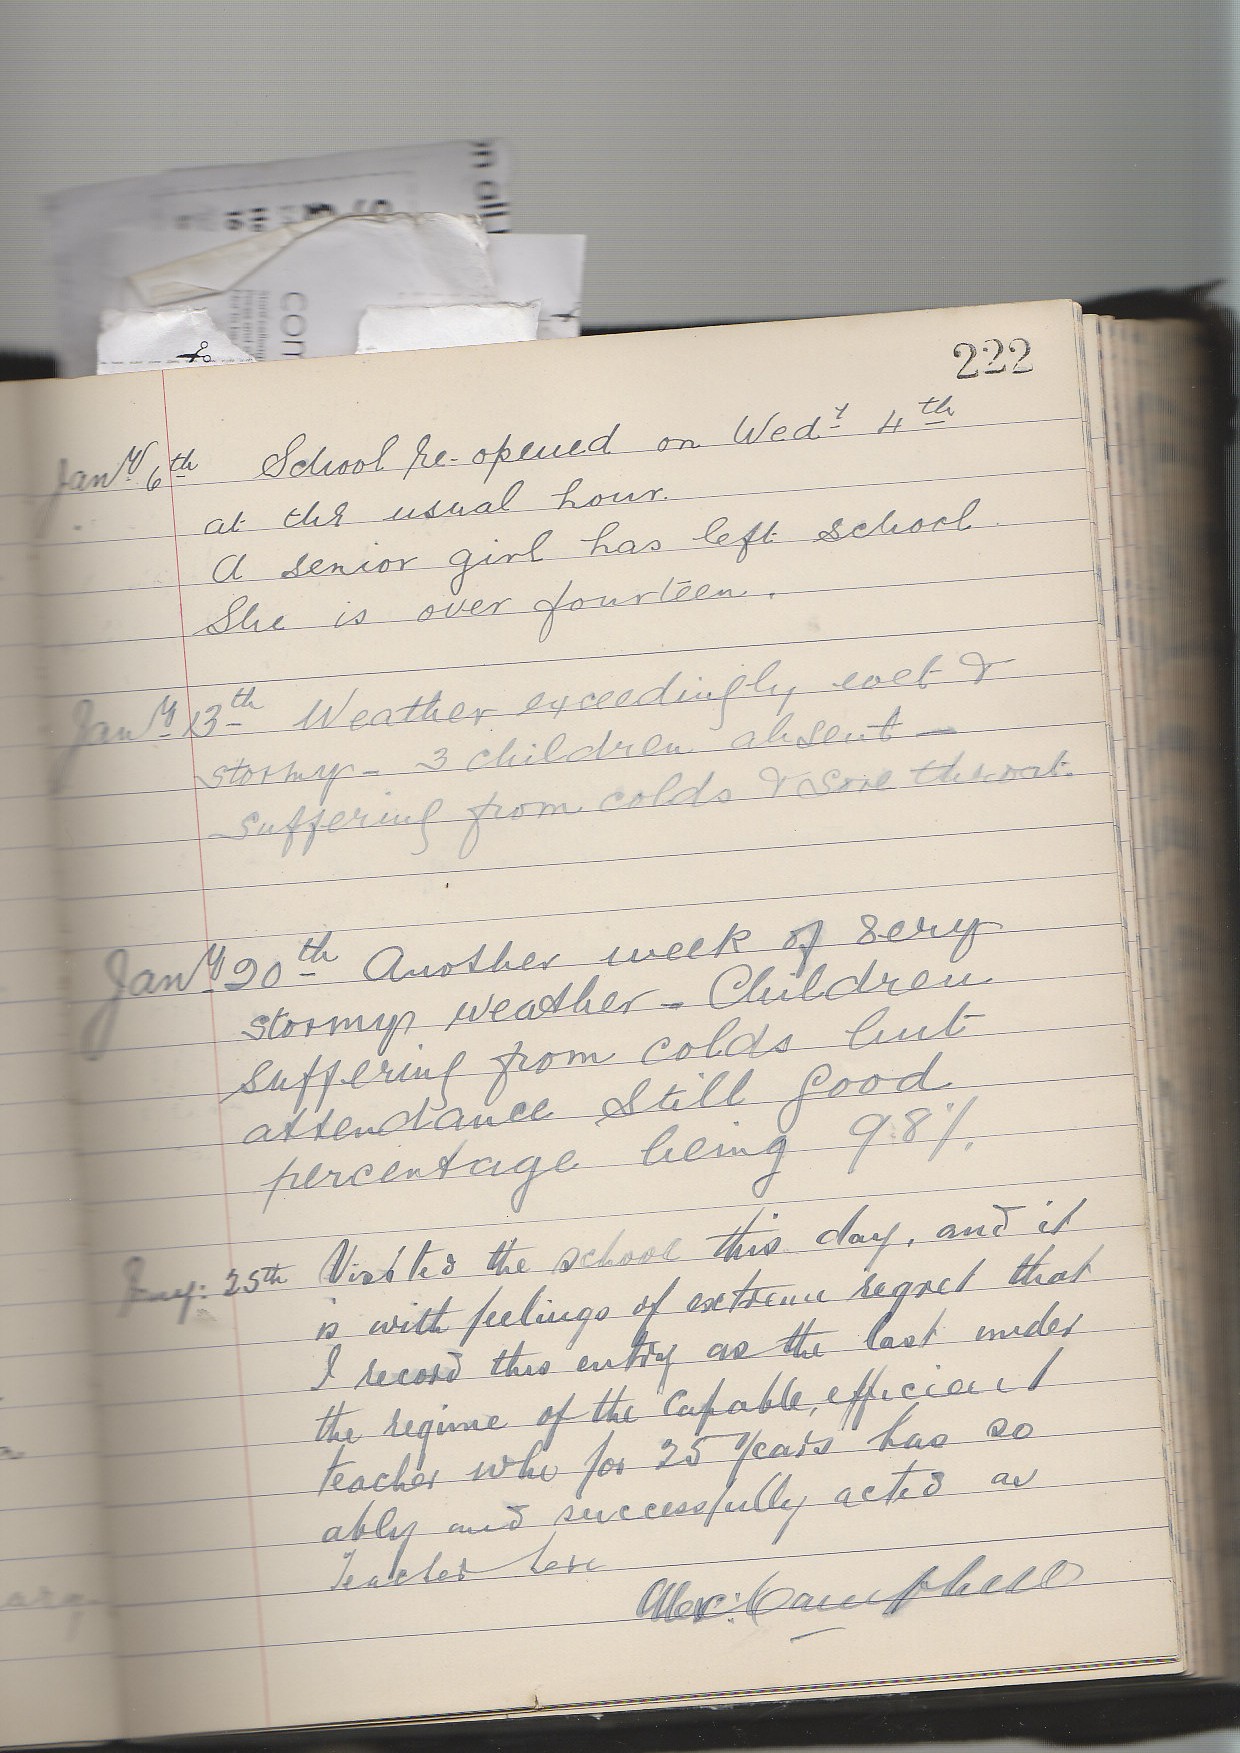 222
Jany 6th School re-opened on Wedy 4th
at the usual hour.
A senior girl has left school
She is over fourteen.
Jany 13th Weather exceedingly wet &
stormy - 3 children absent -
suffering from colds & sore throat.
Jany 20th Another week of very
stormy weather - Children
suffering from colds but
attendance still good
percentage being 98%.
25th Visited the school this day, and it
is with feelings of extreme regret that
I record this entry as the last under
the regime of the capable, efficient
teacher who for 25 years has so
ably and successfully acted as
Teacher here
Alex: Campbell
con